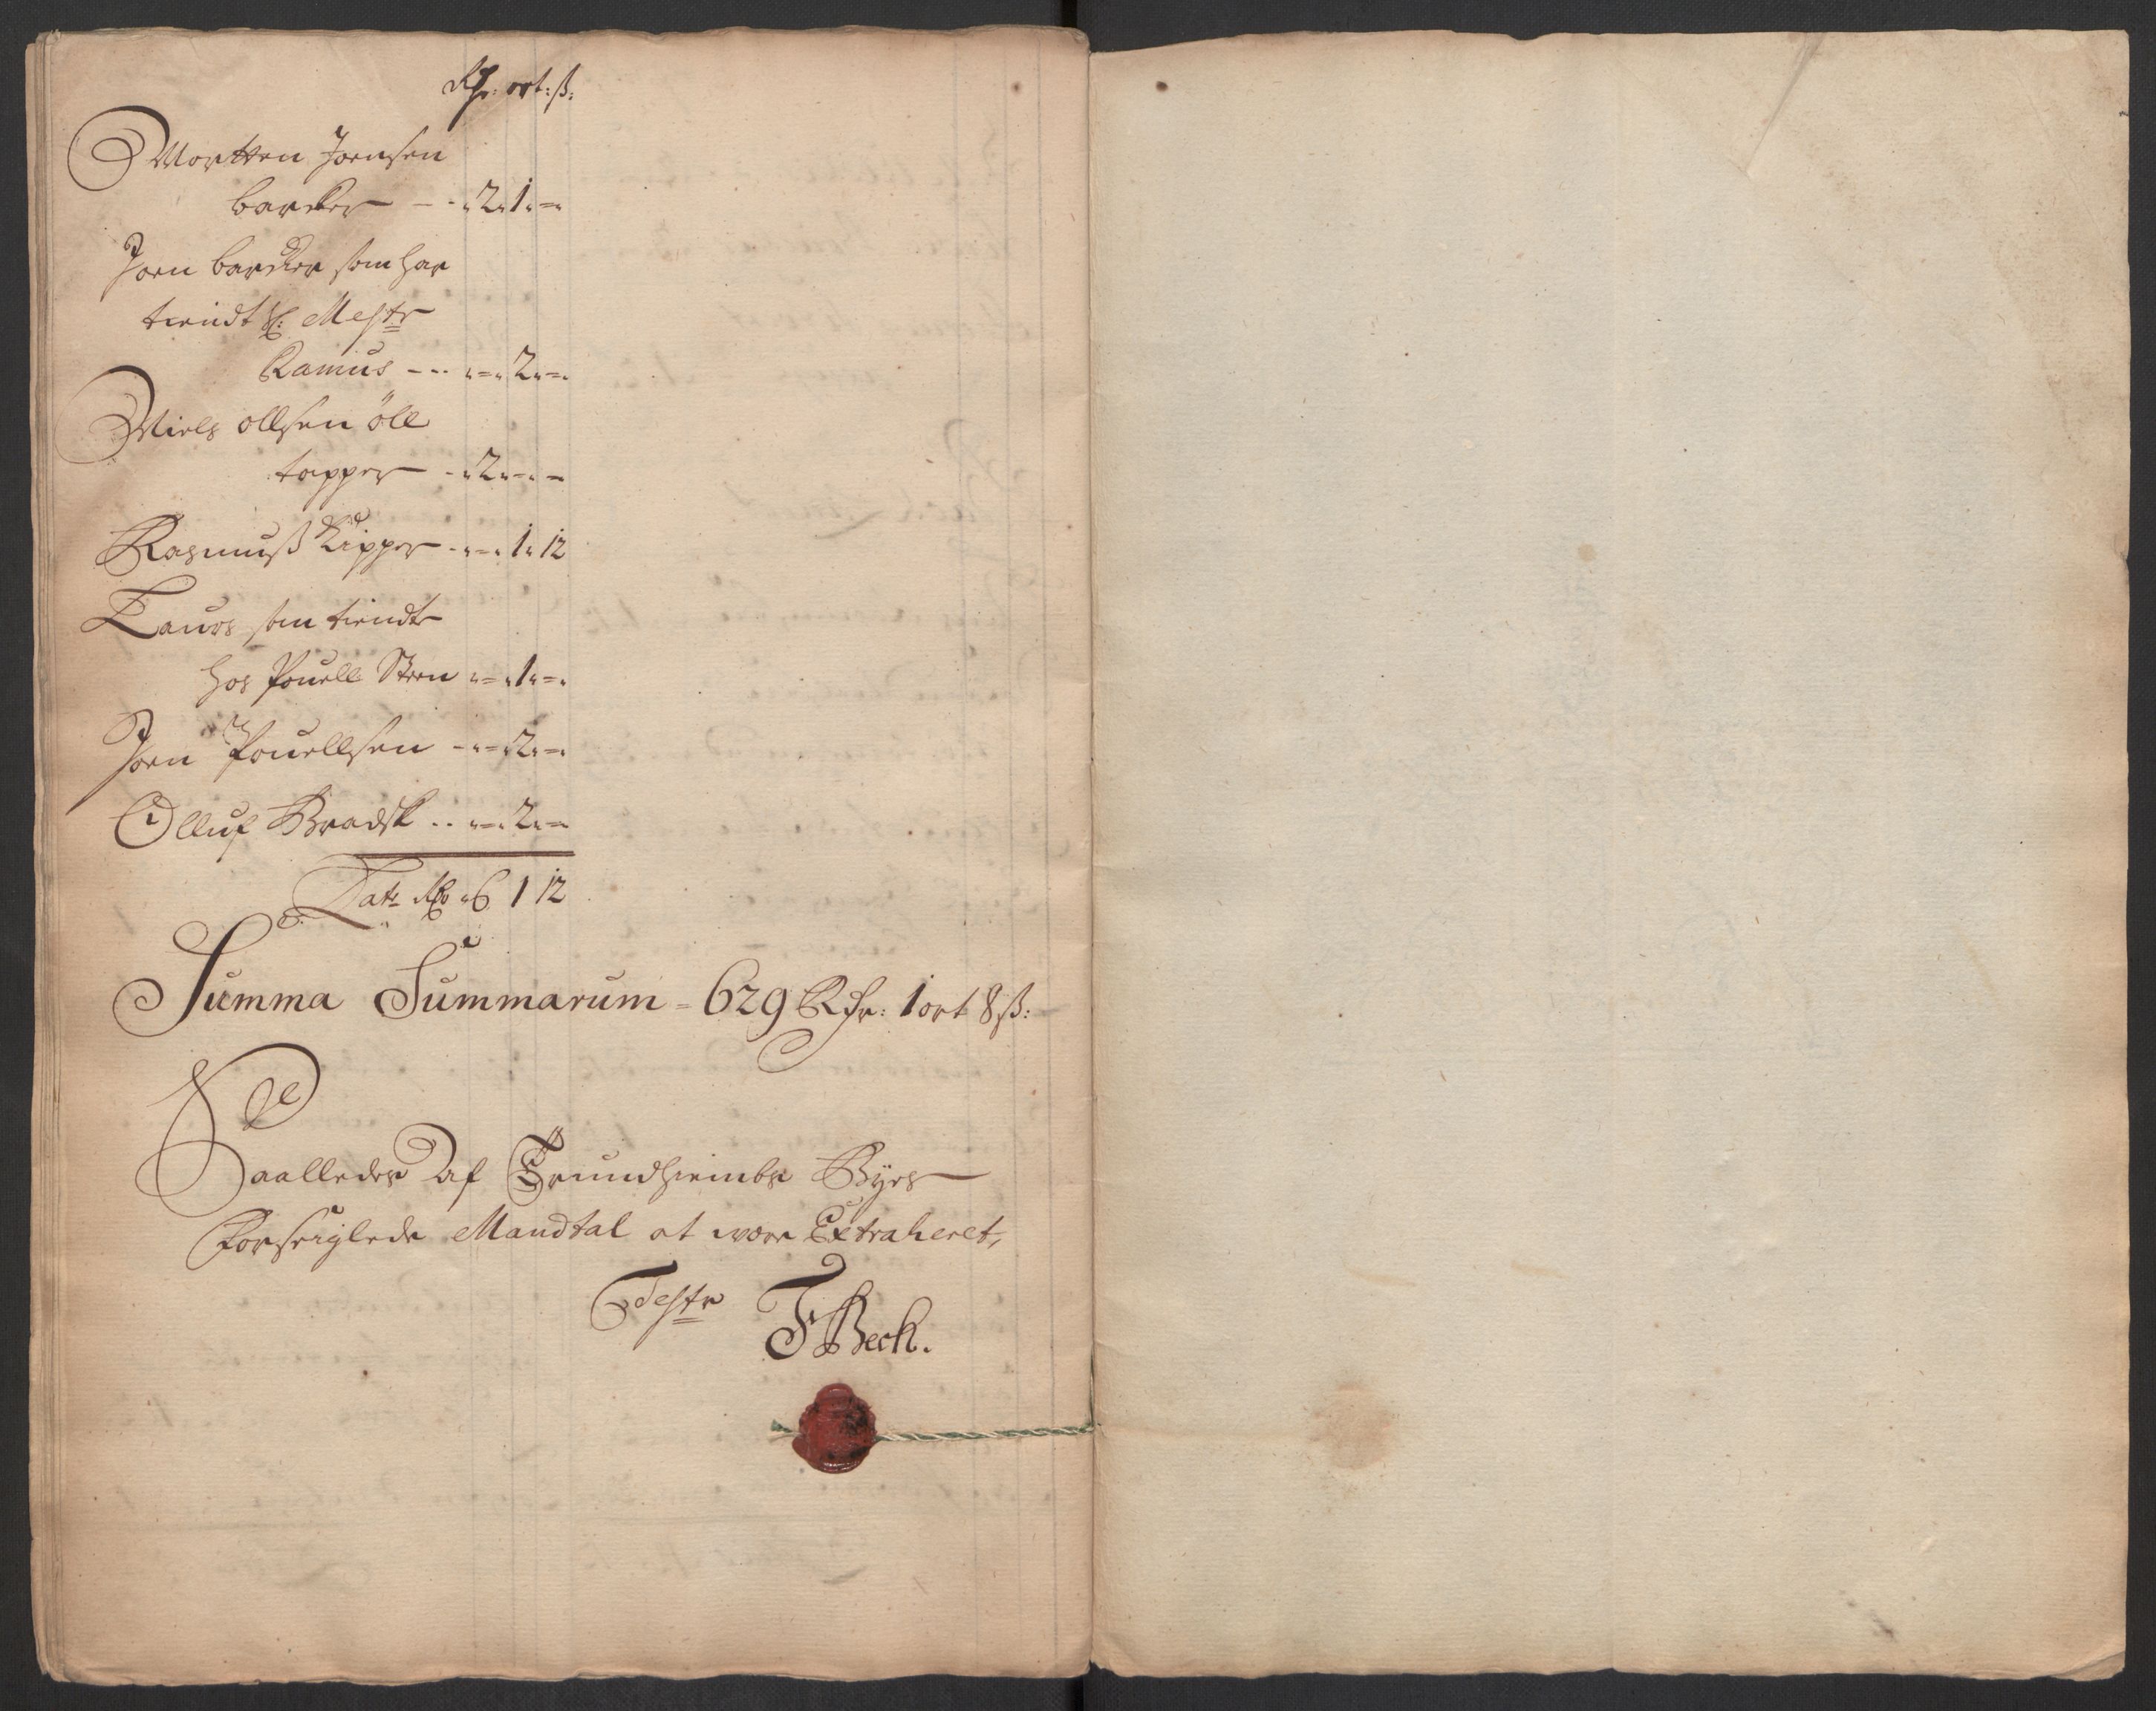 Rdr: ort: ß:
Mortten Joensen
barcker - - „2„1„-„
Joen barcker som har
tiendt Sl: Mestr
Ramus - - - „-„2„-„
Niels ollsen öll
tapper - „2„-„-
Rasmuß Kipper - „-„1„12
Laurs som tiendte
hos Pouell Steen „-„1„-„
Joen Pouellsen - „-„2„-„
Olluf Bradsk - - „-„2„-
Lats Rdr „6 1 12
Summa Summarum - 629 Rdr: 1 ort 8 ß:
Saalledes Af Trundhiembs Byes
Forseiglede Mandtal at være Extraheret,
Teste TBeck.